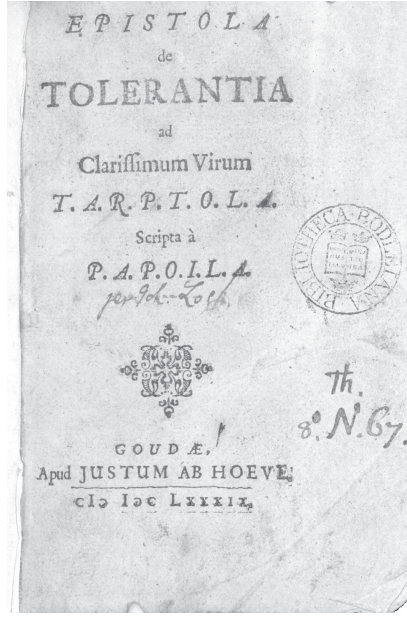 EPISTOLA
de
TOLERANTIA
ad
Clariſſimum Virum
T. A. R. P. T. O. L. A.
Scripta à
P. A. P. O. I. L. A.
BIBLIOTHECA BODLEIANA
Th.
8º. N. 67.
GOUDÆ,
Apud JUSTUM AB HOEVE;
cIↄ Iↄc LXXXIX.